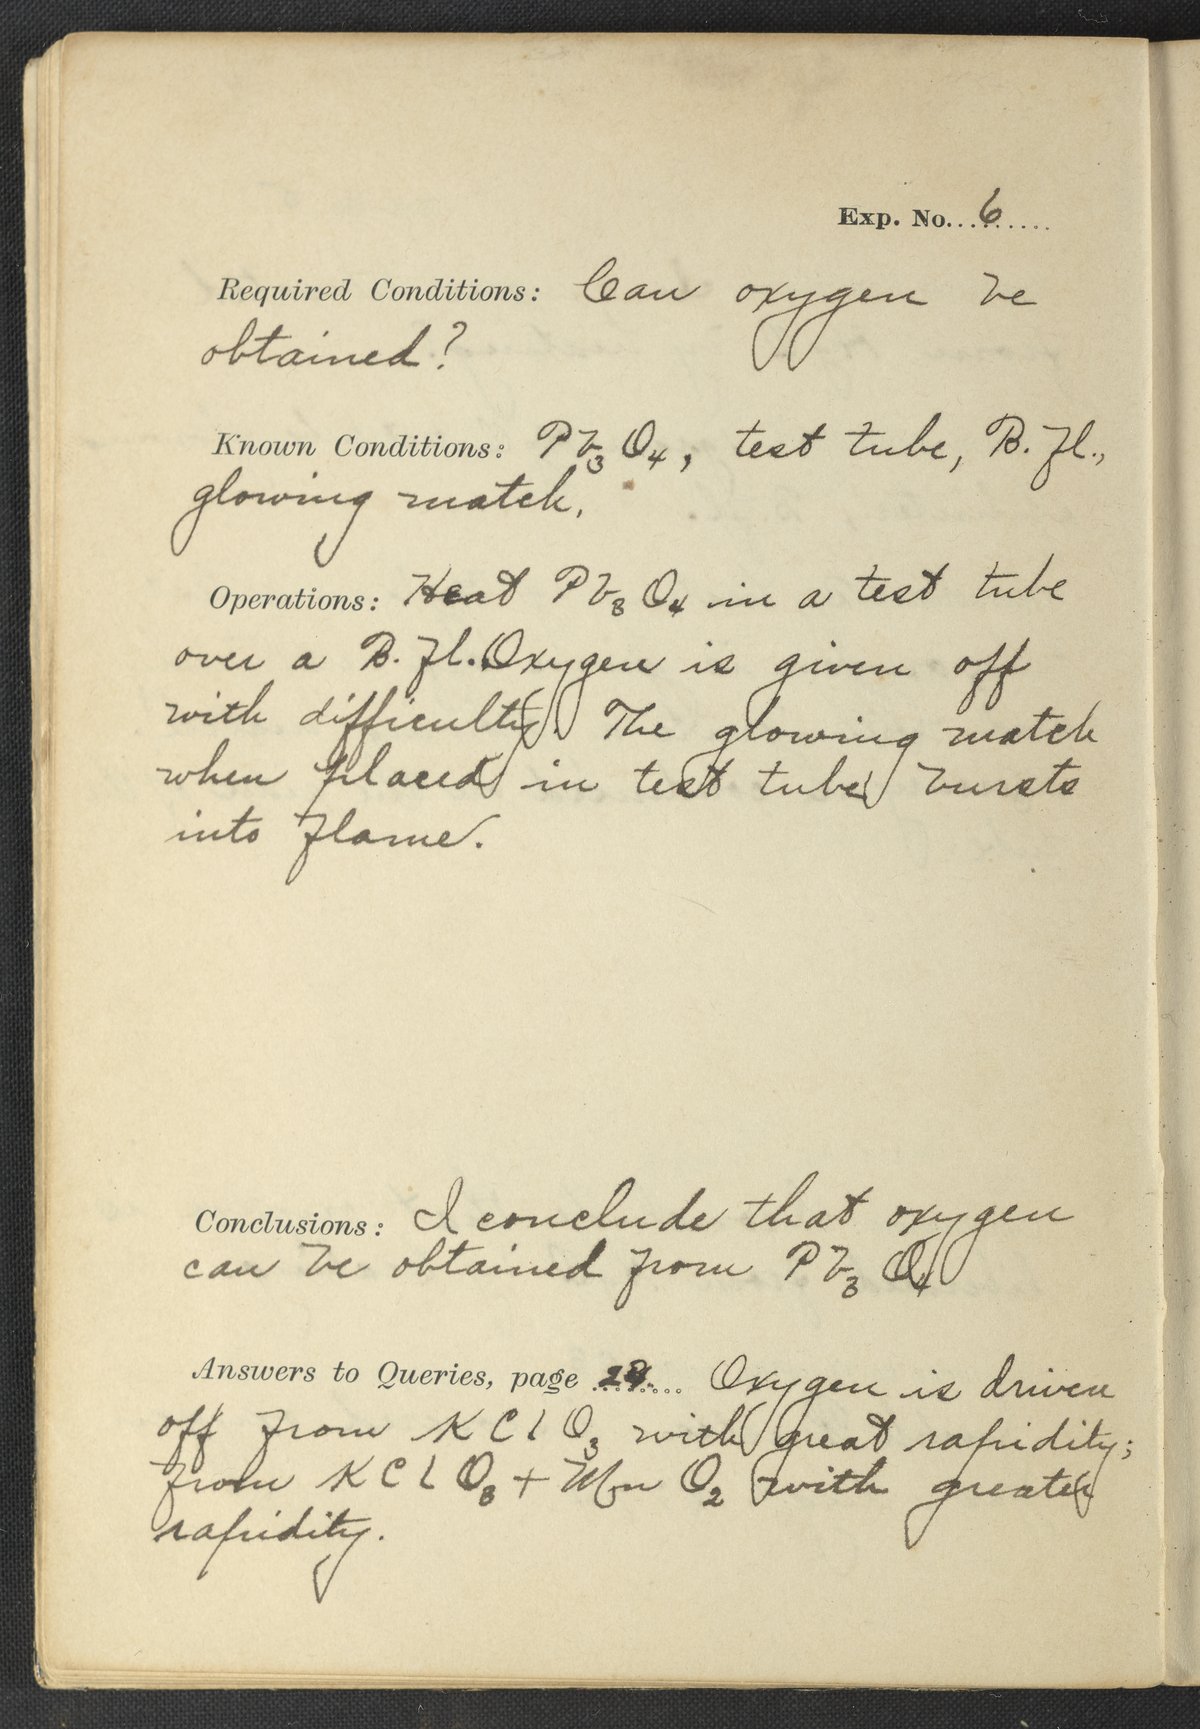 Exp. No. 6
Required Conditions: Can oxygen be
obtained?
Known Conditions: Pb₃O₄, test tube, B. fl.,
glowing match.
Operations: Heat Pb₃O₄ in a test tube
over a B. fl. Oxygen is given off
with difficulty. The glowing match
when placed in test tube bursts
into flame.
Conclusions: I conclude that oxygen
can be obtained from Pb₃O₄
Answers to Queries, page Oxygen is driven
off from KClO₃ with great rapidity;
from KClO₃ + MnO₂ with greater
rapidity.